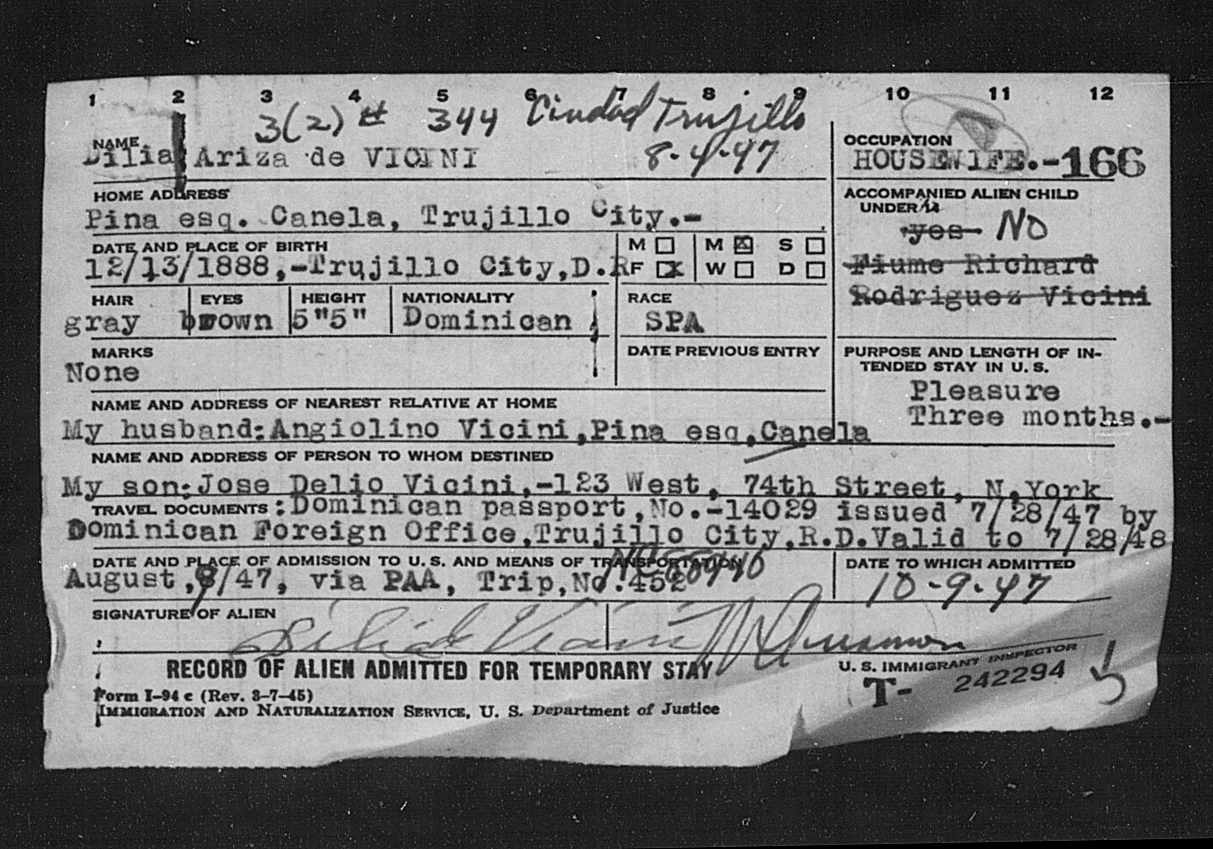 1 2 3 4 5 6 7 8 9 10 11 12
3(2) # 344 Ciudad Trujillo
NAME
Dilia Ariza de VICINI 8-4-47
OCCUPATION
HOUSEWIFE.-166
HOME ADDRESS
Pina esq. Canela, Trujillo City.-
ACCOMPANIED ALIEN CHILD
UNDER 14
yes- NO
Fiume Richard
Rodriguez Vicini
DATE AND PLACE OF BIRTH
12/13/1888,-Trujillo City,D.R
M M X S
F X W D
HAIR EYES HEIGHT NATIONALITY RACE
gray brown 5"5" Dominican SPA
MARKS
None
DATE PREVIOUS ENTRY
PURPOSE AND LENGTH OF IN-
TENDED STAY IN U. S.
Pleasure
Three months.-
NAME AND ADDRESS OF NEAREST RELATIVE AT HOME
My husband:Angiolino Vicini,Pina esq,Canela
NAME AND ADDRESS OF PERSON TO WHOM DESTINED
My son:Jose Delio Vicini,-123 West, 74th Street, N.York
TRAVEL DOCUMENTS :Dominican passport,No.-14029 issued 7/28/47 by
Dominican Foreign Office,Trujillo City,R.D.Valid to 7/28/48
DATE AND PLACE OF ADMISSION TO U. S. AND MEANS OF TRANSPORTATION
August,9/47, via PAA, Trip,No.452
DATE TO WHICH ADMITTED
10-9-47
SIGNATURE OF ALIEN
Dilia de Vicini
RECORD OF ALIEN ADMITTED FOR TEMPORARY STAY
U. S. IMMIGRANT INSPECTOR
T- 242294
5
Form I-94 c (Rev. 3-7-45)
IMMIGRATION AND NATURALIZATION SERVICE, U. S. Department of Justice